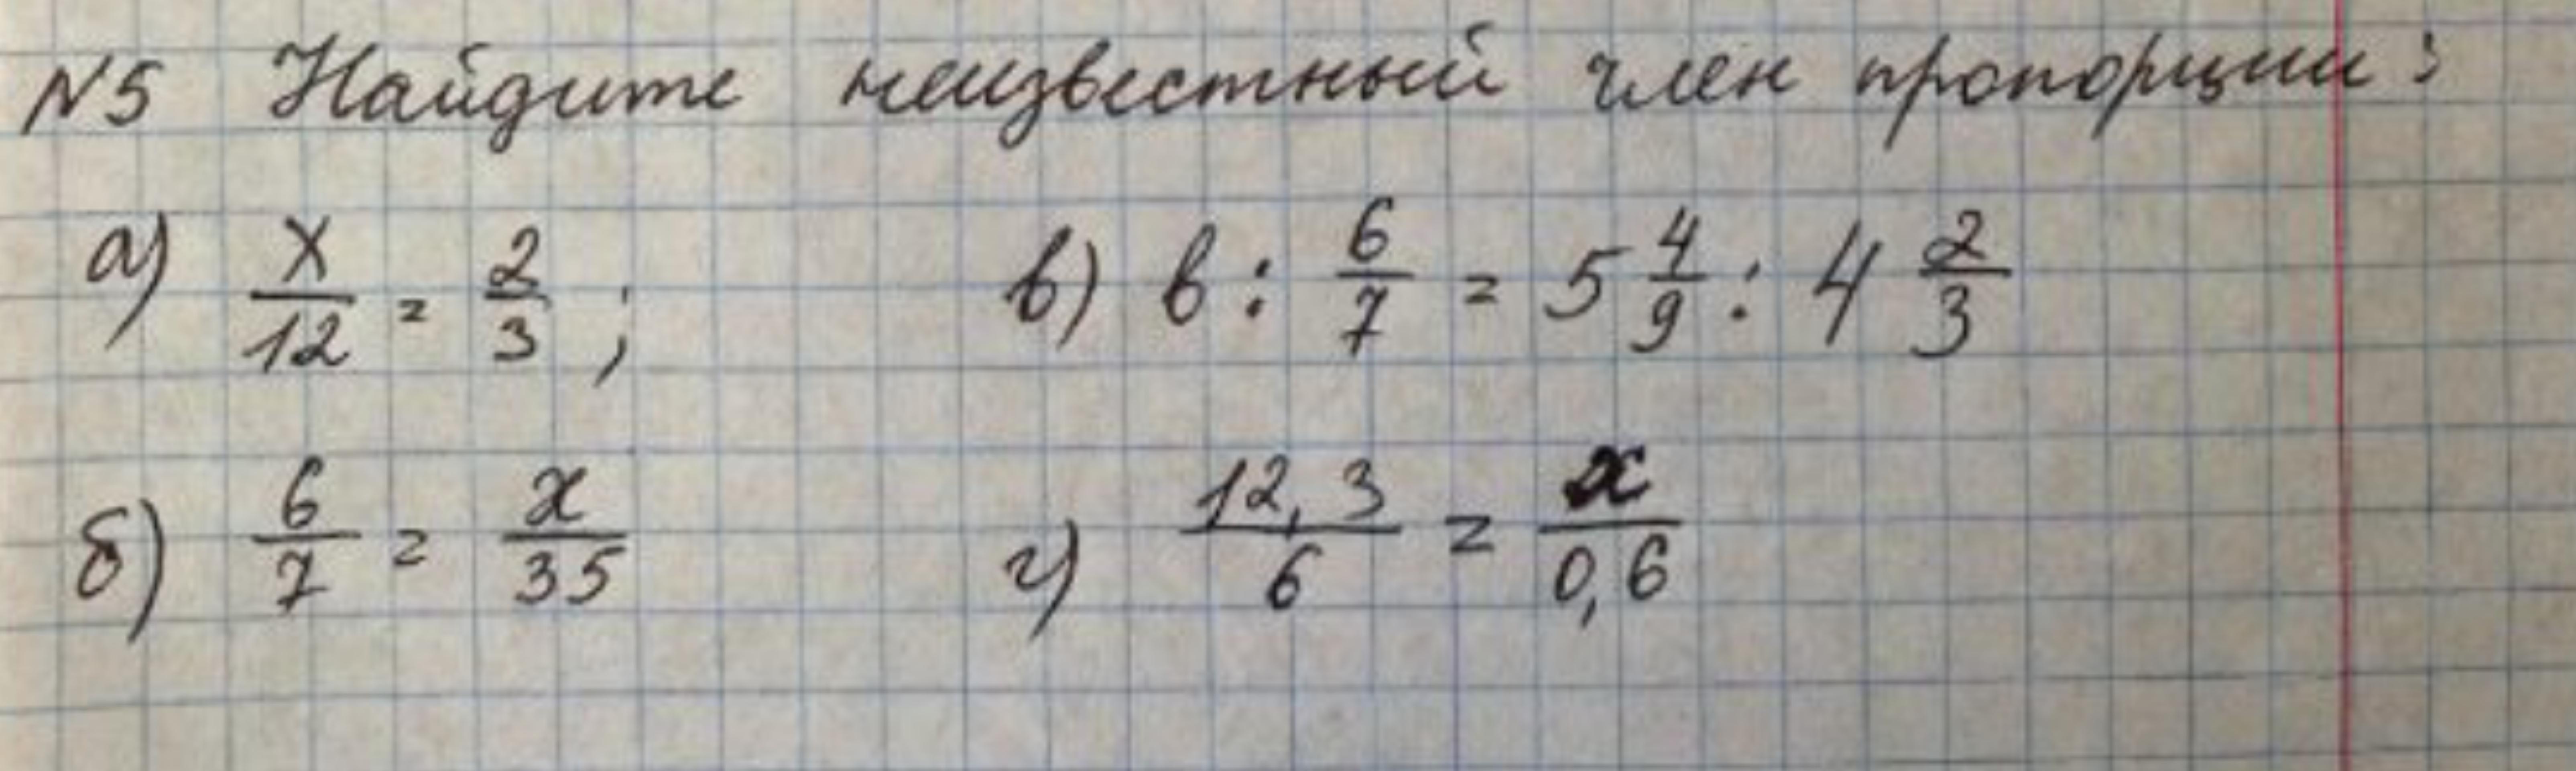 №5 Найдите неизвестный член пропорции:
а) x/12 = 2/3 ; в) в : 6/7 = 5 4/9 : 4 2/3
б) 6/7 = x/35 г) 12,3/6 = x/0,6